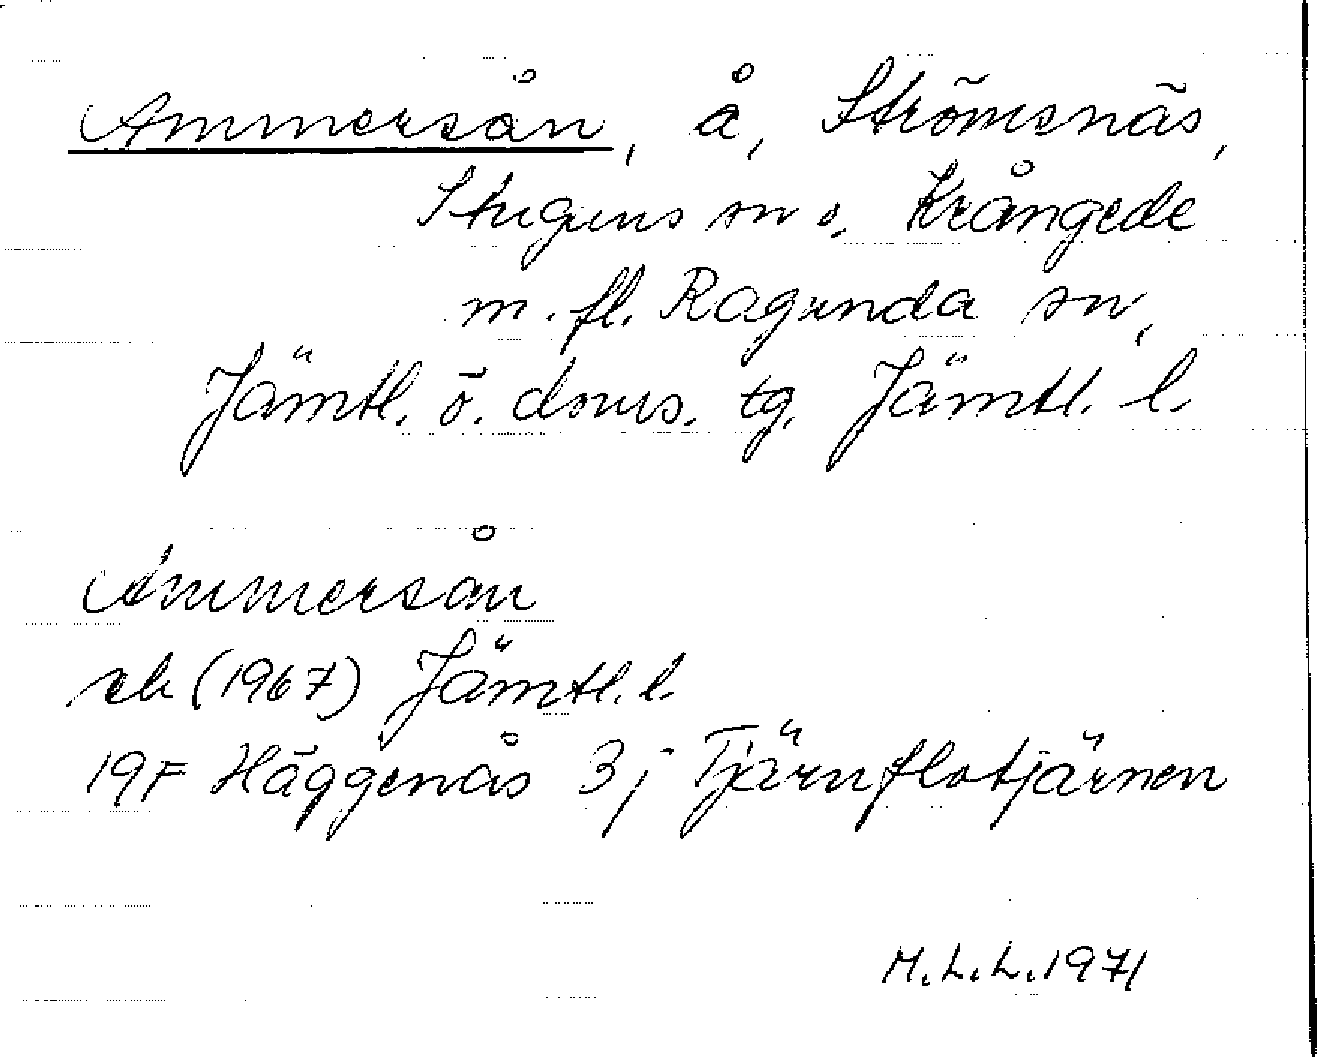 Ammersån, å, Strömsnäs,
Stuguns sn o. Krångede
m. fl. Ragunda sn,
Jämtl. ö. doms. tg. Jämtl. l.
Ammersån
rek (1967) Jämtl. l.
19F Häggenås 3j Tjärnflotjärnen
M.L.L. 1971